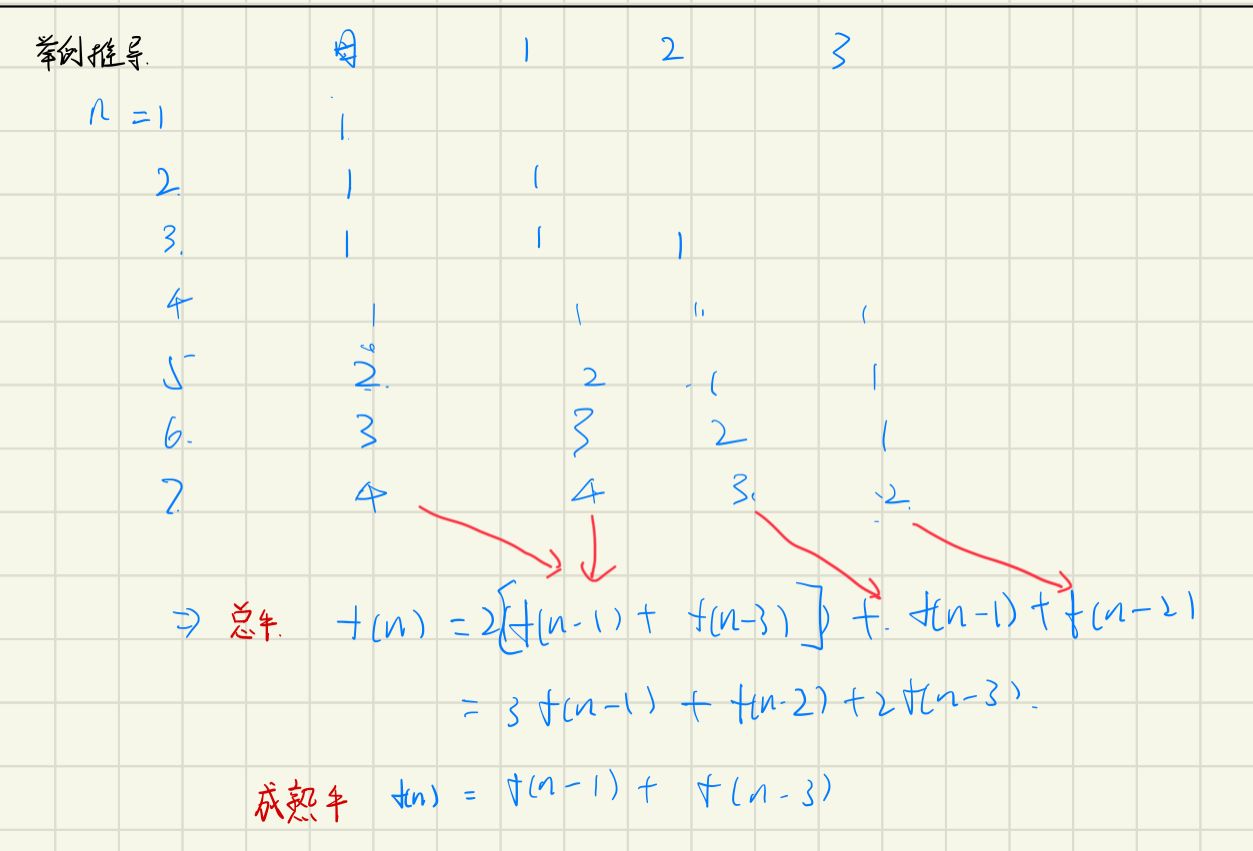 举例推导. 母 1 2 3
n = 1 1.
2. 1 1
3. 1 1 1
4 1 1 1 1
5 2. 2 1 1
6. 3 3 2 1
7. 4 4 3. 2.
⇒ 总牛. f(n) = 2[f(n-1) + f(n-3)] + f(n-1) + f(n-2)
= 3f(n-1) + f(n-2) + 2f(n-3).
成熟牛 f(n) = f(n-1) + f(n-3)